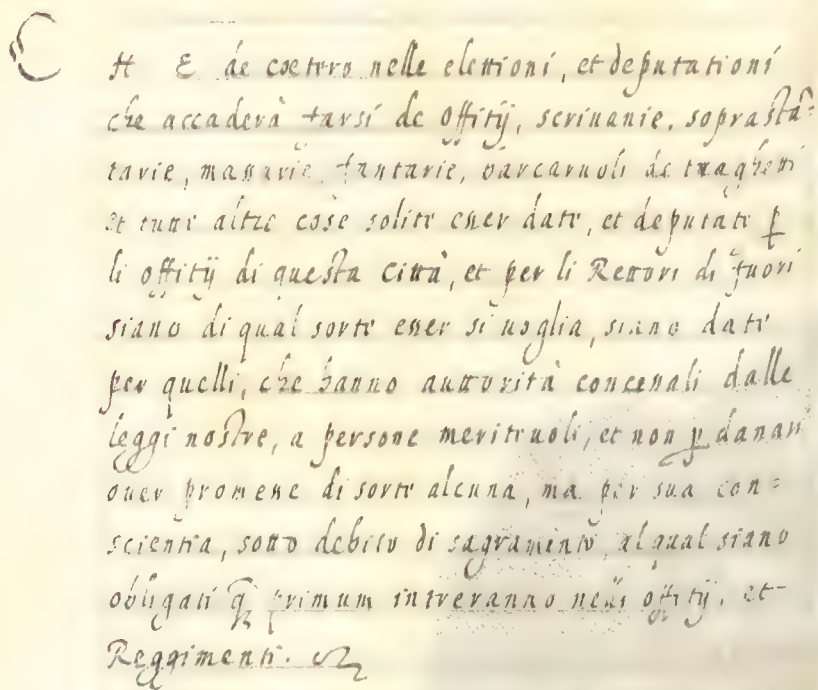 CHE de cœtero nelle elettioni, et deputationi
che accaderà farsi de offitij, scrivanie, soprasta=
tarie, massarie, fantarie, barcaruoli de traghetti
et tutte altre cose solite esser date, et deputate p
li offitij di questa Città, et per li Rettori di fuori
siano di qual sorte esser si uoglia, siano date
per quelli, che hanno auttorità concessali dalle
leggi nostre, a persone meriteuoli, et non p danari
ouer promesse di sorte alcuna, ma per sua con=
scientia, sotto debito di sagramento, al qual siano
obligati q primum intreranno nelli offitij, et
Reggimenti.